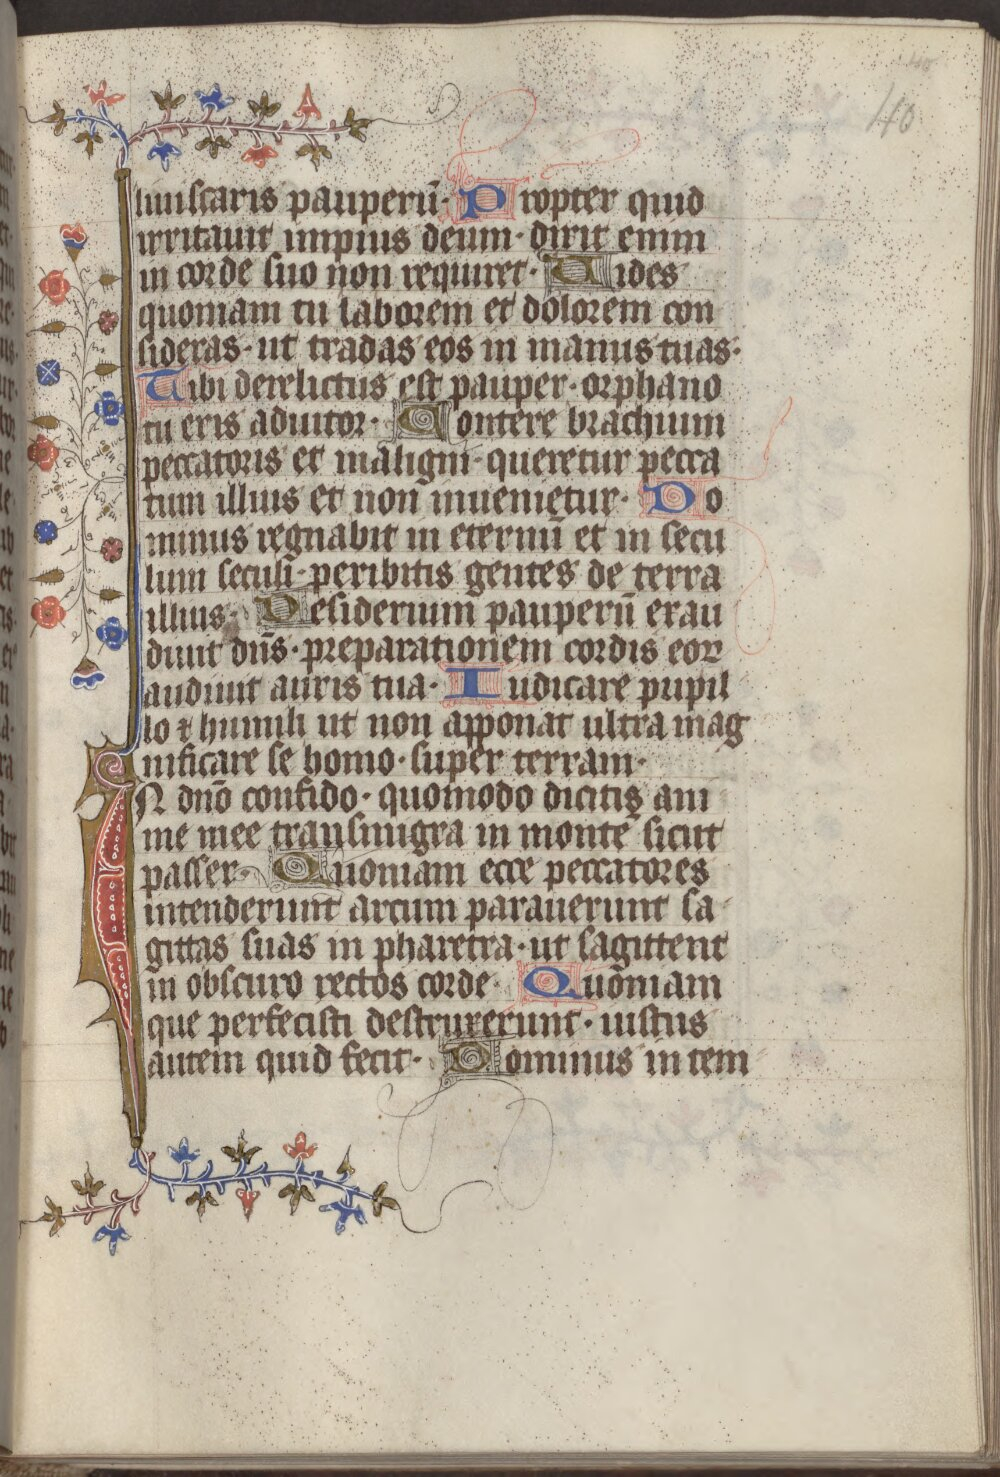 40
liuiscaris pauperū· Propter quid
irritauit impius deum· dixit enim
in corde suo non requiret· Uides
quoniam tu laborem et dolorem con
sideras· ut tradas eos in manus tuas·
Tibi derelictus est pauper· orphano
tu eris adiutor· Contere brachium
peccatoris et maligni· queretur pecca
tum illius et non inuenietur· Do
minus regnabit in eternū et in secu
lum seculi· peribitis gentes de terra
illius· Desiderium pauperū exau
diuit dn̄s· preparationem cordis eoꝝ
audiuit auris tua· Iudicare pupil
lo ⁊ humili ut non apponat ultra mag
nificare se homo· super terram·
IN dn̄o confido· quomodo dicitis ani
me mee transmigra in montē sicut
passer· Quoniam ecce peccatores
intenderunt arcum parauerunt sa
gittas suas in pharetra· ut sagittent
in obscuro rectos corde· Quoniam
que perfecisti destruxerunt· iustus
autem quid fecit· Dominus in tem